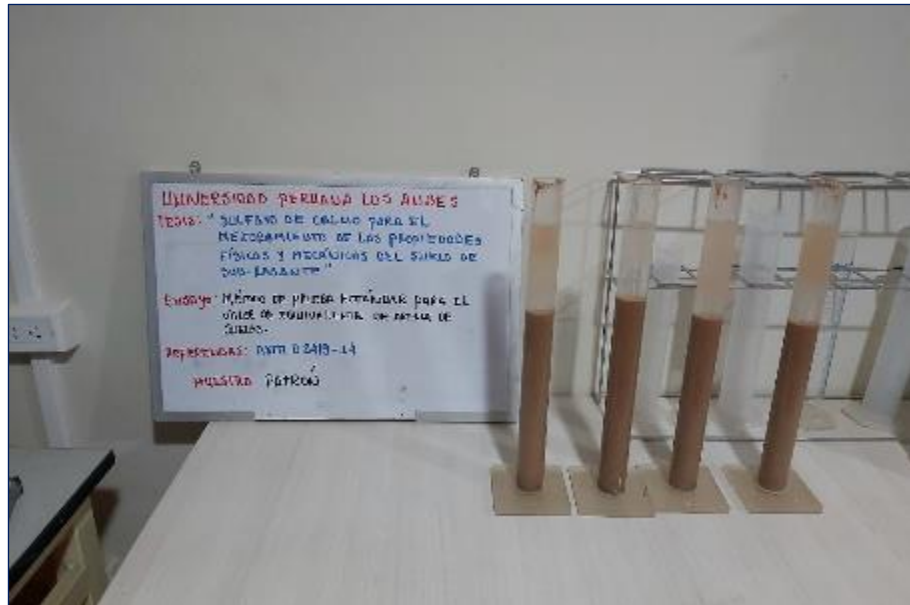 UNIVERSIDAD PERUANA LOS ANDES
TESIS: "SULFATO DE CALCIO PARA EL
MEJORAMIENTO DE LAS PROPIEDADES
FÍSICAS Y MECÁNICAS DEL SUELO DE
SUB-RASANTE"
Ensayo: MÉTODO DE PRUEBA ESTÁNDAR PARA EL
VALOR DE EQUIVALENTE DE ARENA DE
SUELOS.
REFERENCIAS: ASTM D2419-14
MUESTRA PATRÓN